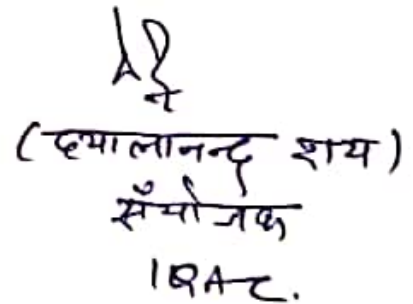 (दयालानन्द राय)
सँयोजक
IQAC.